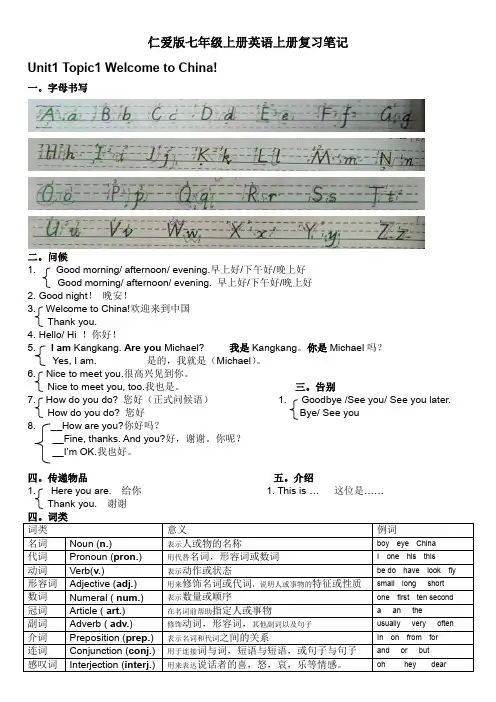 仁爱版七年级上册英语上册复习笔记
Unit1 Topic1 Welcome to China!
一。字母书写
A a B b C c D d E e F f G g
H h I i J j K k L l M m N n
O o P p Q q R r S s T t
U u V v W w X x Y y Z z
二。问候
1. Good morning/ afternoon/ evening.早上好/下午好/晚上好
Good morning/ afternoon/ evening. 早上好/下午好/晚上好
2. Good night！ 晚安！
3. Welcome to China!欢迎来到中国
Thank you.
4. Hello/ Hi ！你好！
5. I am Kangkang. Are you Michael? 我是Kangkang。你是Michael吗？
Yes, I am. 是的，我就是（Michael）。
6. Nice to meet you.很高兴见到你。
Nice to meet you, too.我也是。
7. How do you do? 您好（正式问候语）
How do you do? 您好
8. __How are you?你好吗？
__Fine, thanks. And you?好，谢谢。你呢？
__I'm OK.我也好。
三。告别
1. Goodbye /See you/ See you later.
Bye/ See you
四。传递物品
1. Here you are. 给你
Thank you. 谢谢
五。介绍
1. This is … 这位是……
四。词类
词类 意义 例词
名词 Noun (n.) 表示人或物的名称 boy eye China
代词 Pronoun (pron.) 用代替名词，形容词或数词 I one his this
动词 Verb(v.) 表示动作或状态 be do have look fly
形容词 Adjective (adj.) 用来修饰名词或代词，说明人或事物的特征或性质 small long short
数词 Numeral ( num.) 表示数量或顺序 one first ten second
冠词 Article ( art.) 在名词前帮助指定人或事物 a an the
副词 Adverb ( adv.) 修饰动词，形容词，其他副词以及句子 usually very often
介词 Preposition (prep.) 表示名词和代词之间的关系 In on from for
连词 Conjunction (conj.) 用于连接词与词，短语与短语，或句子与句子 and or but
感叹词 Interjection (interj.) 用来表达说话者的喜，怒，哀，乐等情感。 oh hey dear